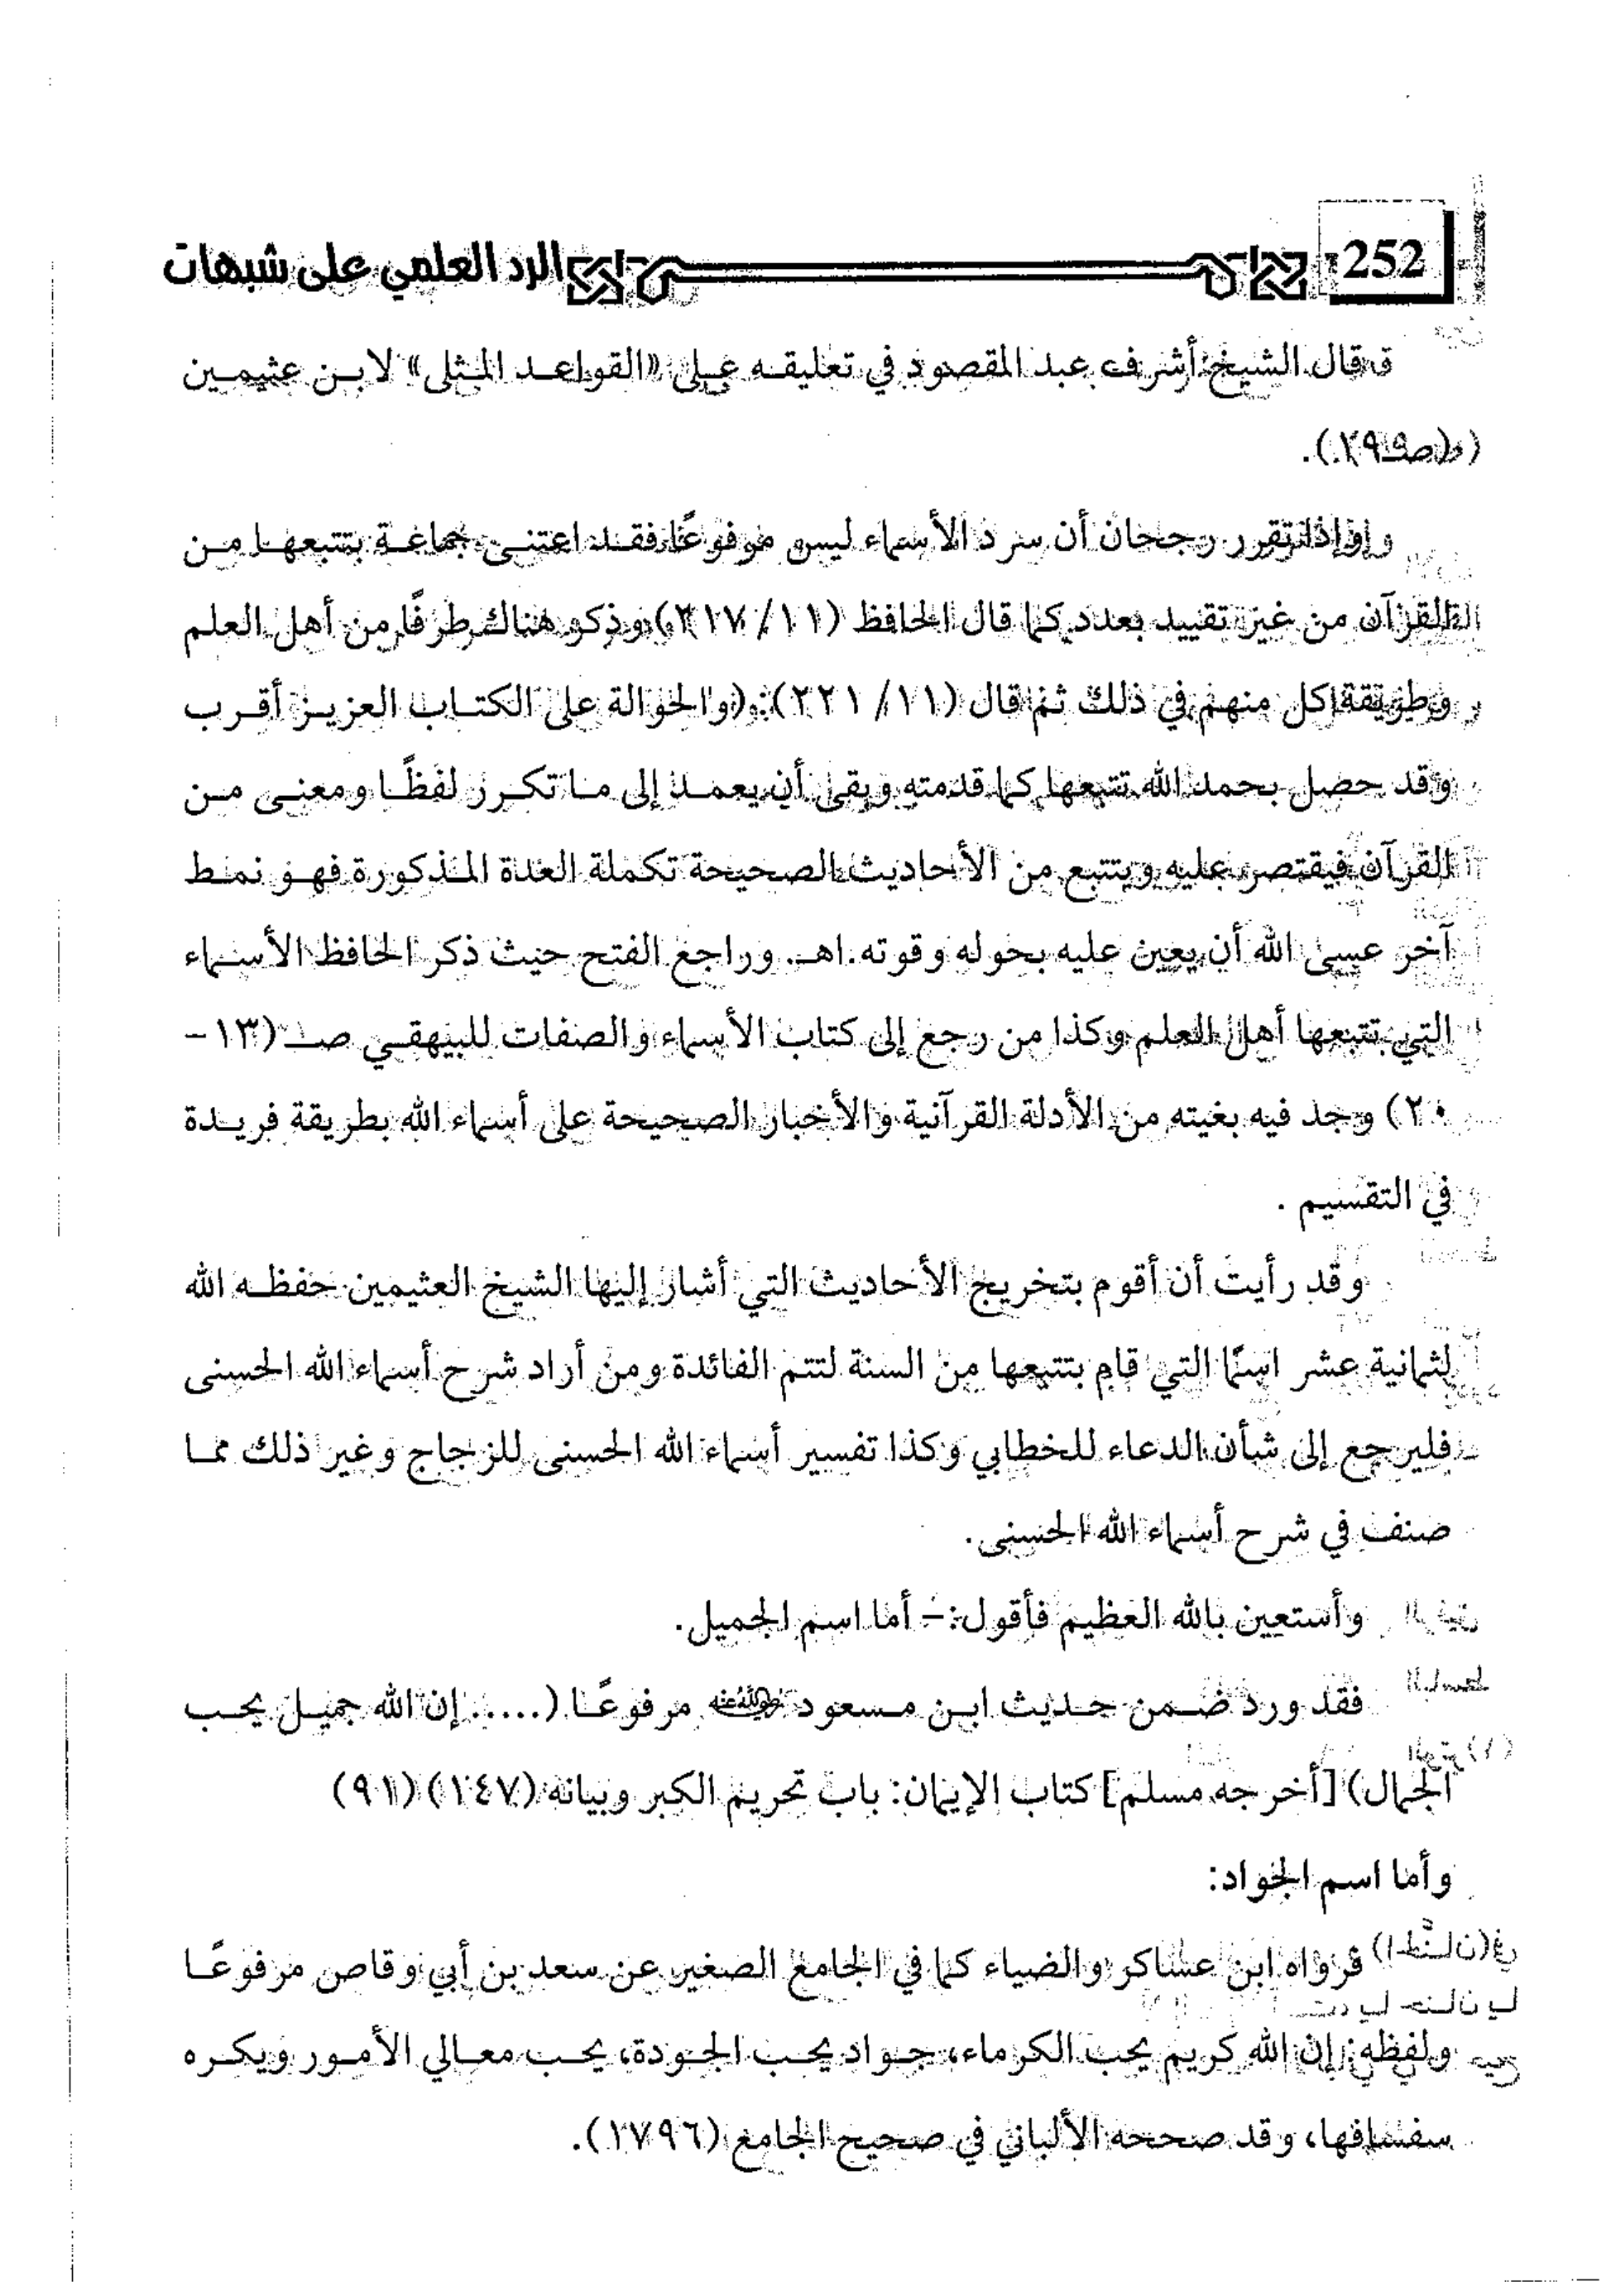 252 الرد العلمي على شبهات
قال الشيخ أشرف عبد المقصود في تعليقه على «القواعد المثلى» لابن عثيمين
وإذا تقرر رجحان أن سرد الأسماء ليس مرفوعًا فقد اعتنى جماعة بتتبعها من
القرآن من غير تقييد بعدد كما قال الحافظ (١١/ ٢١٧) وذكر هناك طرفًا من أهل العلم
وطريقة كل منهم في ذلك ثم قال (١١/ ٢٢١): (والحوالة على الكتاب العزيز أقرب
وقد حصل بحمد الله تتبعها كما قدمته وبقي أن يعمد إلى ما تكرر لفظًا ومعنى من
القرآن فيقتصر عليه ويتتبع من الأحاديث الصحيحة تكملة العدة المذكورة فهو نمط
آخر عسى الله أن يعين عليه بحوله وقوته.اهـ. وراجع الفتح حيث ذكر الحافظ الأسماء
التي تتبعها أهل العلم وكذا من رجع إلى كتاب الأسماء والصفات للبيهقي صـ (١٣-
٢٠) وجد فيه بغيته من الأدلة القرآنية والأخبار الصحيحة على أسماء الله بطريقة فريدة
في التقسيم .
وقد رأيت أن أقوم بتخريج الأحاديث التي أشار إليها الشيخ العثيمين حفظه الله
لثمانية عشر اسمًا التي قام بتتبعها من السنة لتتم الفائدة ومن أراد شرح أسماء الله الحسنى
فليرجع إلى شأن الدعاء للخطابي وكذا تفسير أسماء الله الحسنى للزجاج وغير ذلك مما
صنف في شرح أسماء الله الحسنى.
وأستعين بالله العظيم فأقول:- أما اسم الجميل.
فقد ورد ضمن حديث ابن مسعود رضي الله عنه مرفوعًا (..... إن الله جميل يحب
الجمال) [أخرجه مسلم] كتاب الإيمان: باب تحريم الكبر وبيانه (١٤٧) (٩١)
وأما اسم الجواد:
فرواه ابن عساكر والضياء كما في الجامع الصغير عن سعد بن أبي وقاص مرفوعًا
ولفظه: إن الله كريم يحب الكرماء، جواد يحب الجودة، يحب معالي الأمور ويكره
سفسافها، وقد صححه الألباني في صحيح الجامع (١٧٩٦).